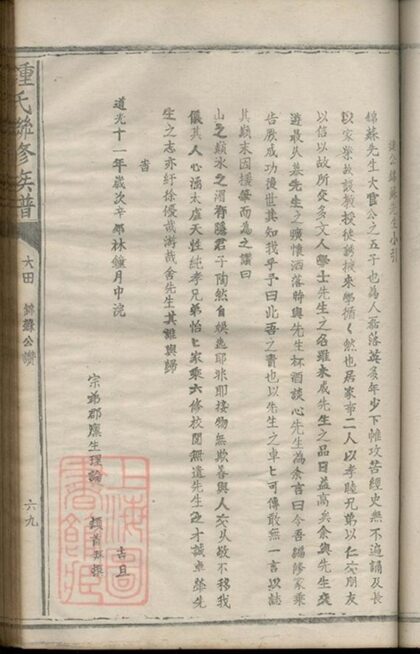 逵公錦蘇先生小引
錦蘇先生大官公之五子也為人磊落英多年少下帷攻苦經史無不遍誦及長
以家業故設教授徒誘掖來學循〻然也居家事二人以孝睦兄弟以仁交朋友
以信以故所交多文人學士先生之名雖未成先生之品日益高矣余與先生交
遊最久慕先生之曠懷洒落時與先生杯酒談心先生為余言曰今吾編修家乘
告厥成功後世其知我乎予曰此吾之責也以先生之車〻可傳敢無一言以誌
其巔末因援筆而為之讚曰
山之巔水之湄有隱君子陶然自娛逸耶非耶接物無欺善與人交久敬不移我
儀其人心涵太虛天性純孝兄弟怡〻家乘六修校閱無遺先生之才誠堪華先
生之志亦紆徐優哉游哉舍先生其誰與歸
旹
道光十一年歲次辛卯林鐘月中浣
宗弟郡廩生理論 士且 頓首拜撰
鍾氏雖修族譜
大田 錦蘇公讚
六九
上海圖書館藏